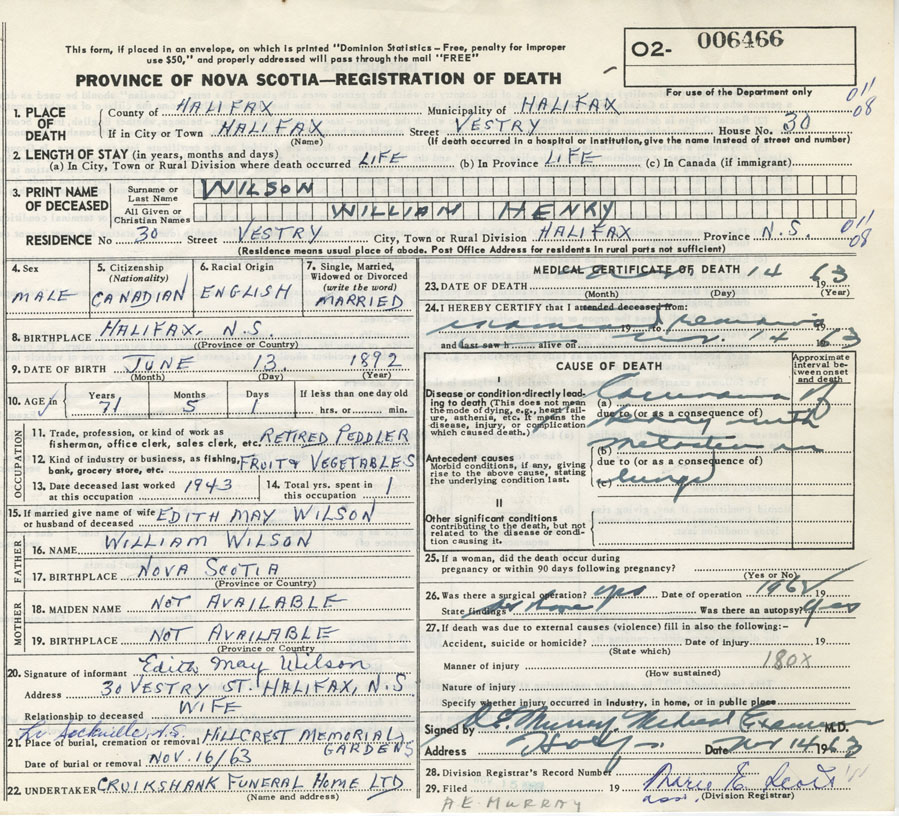 This form, if placed in an envelope, on which is printed "Dominion Statistics – Free, penalty for improper
use $50," and properly addressed will pass through the mail "FREE"
PROVINCE OF NOVA SCOTIA—REGISTRATION OF DEATH
O2- 006466
For use of the Department only
011
08
1. PLACE OF DEATH
County of HALIFAX Municipality of HALIFAX
If in City or Town HALIFAX Street VESTRY House No. 30
(Name) (If death occurred in a hospital or institution, give the name instead of street and number)
2. LENGTH OF STAY (in years, months and days)
(a) In City, Town or Rural Division where death occurred LIFE (b) In Province LIFE (c) In Canada (if immigrant)
3. PRINT NAME OF DECEASED
Surname or Last Name WILSON
All Given or Christian Names WILLIAM HENRY
RESIDENCE No 30 Street VESTRY City, Town or Rural Division HALIFAX Province N.S.
011
08
(Residence means usual place of abode. Post Office Address for residents in rural parts not sufficient)
4. Sex
MALE
5. Citizenship
(Nationality)
CANADIAN
6. Racial Origin
ENGLISH
7. Single, Married,
Widowed or Divorced
(write the word)
MARRIED
8. BIRTHPLACE HALIFAX, N.S.
(Province or Country)
9. DATE OF BIRTH JUNE 13 1892
(Month) (Day) (Year)
10. AGE in
Years
71
Months
5
Days
1
If less than one day old
hrs. or min.
OCCUPATION
11. Trade, profession, or kind of work as
fisherman, office clerk, sales clerk, etc. RETIRED PEDDLER
12. Kind of industry or business, as fishing,
bank, grocery store, etc. FRUIT & VEGETABLES
13. Date deceased last worked
at this occupation 1943
14. Total yrs. spent in
this occupation 1
15. If married give name of wife
or husband of deceased EDITH MAY WILSON
FATHER
16. NAME WILLIAM WILSON
17. BIRTHPLACE NOVA SCOTIA
(Province or Country)
MOTHER
18. MAIDEN NAME NOT AVAILABLE
19. BIRTHPLACE NOT AVAILABLE
(Province or Country
20. Signature of informant Edith May Wilson
Address 30 VESTRY ST. HALIFAX, N.S.
Relationship to deceased WIFE
Sackville, N.S.
21. Place of burial, cremation or removal HILLCREST MEMORIAL
GARDENS
Date of burial or removal NOV. 16/63
22. UNDERTAKER CRUIKSHANK FUNERAL HOME LTD
(Name and address)
MEDICAL CERTIFICATE OF DEATH
23. DATE OF DEATH 14 1963
(Month) (Day) (Year)
24. I HEREBY CERTIFY that I attended deceased from:
examined remains
19 to 19
and last saw h alive on Nov. 14 1963
CAUSE OF DEATH
Approximate interval between onset and death
I
Disease or condition directly leading to death (This does not mean
the mode of dying, e.g., heart failure, asthenia, etc. It means the
disease, injury, or complication
which caused death.)
(a) Carcinoma of
due to (or as a consequence of)
kidney with
Antecedent causes
Morbid conditions, if any, giving
rise to the above cause, stating
the underlying condition last.
(b)
due to (or as a consequence of)
(c) lungs
II
Other significant conditions
contributing to the death, but not
related to the disease or condition causing it.
25. If a woman, did the death occur during
pregnancy or within 90 days following pregnancy?
(Yes or No)
26. Was there a surgical operation? yes Date of operation 1962 19
State findings as above Was there an autopsy? yes
27. If death was due to external causes (violence) fill in also the following:-
Accident, suicide or homicide? Date of injury 19
(State which)
Manner of injury 180X
(How sustained)
Nature of injury
Specify whether injury occurred in industry, in home, or in public place
Signed by A.E. Murray Medical Examiner M.D.
Address Date Nov 14 1963
28. Division Registrar's Record Number
29. Filed 19
(Division Registrar)
A.E. MURRAY